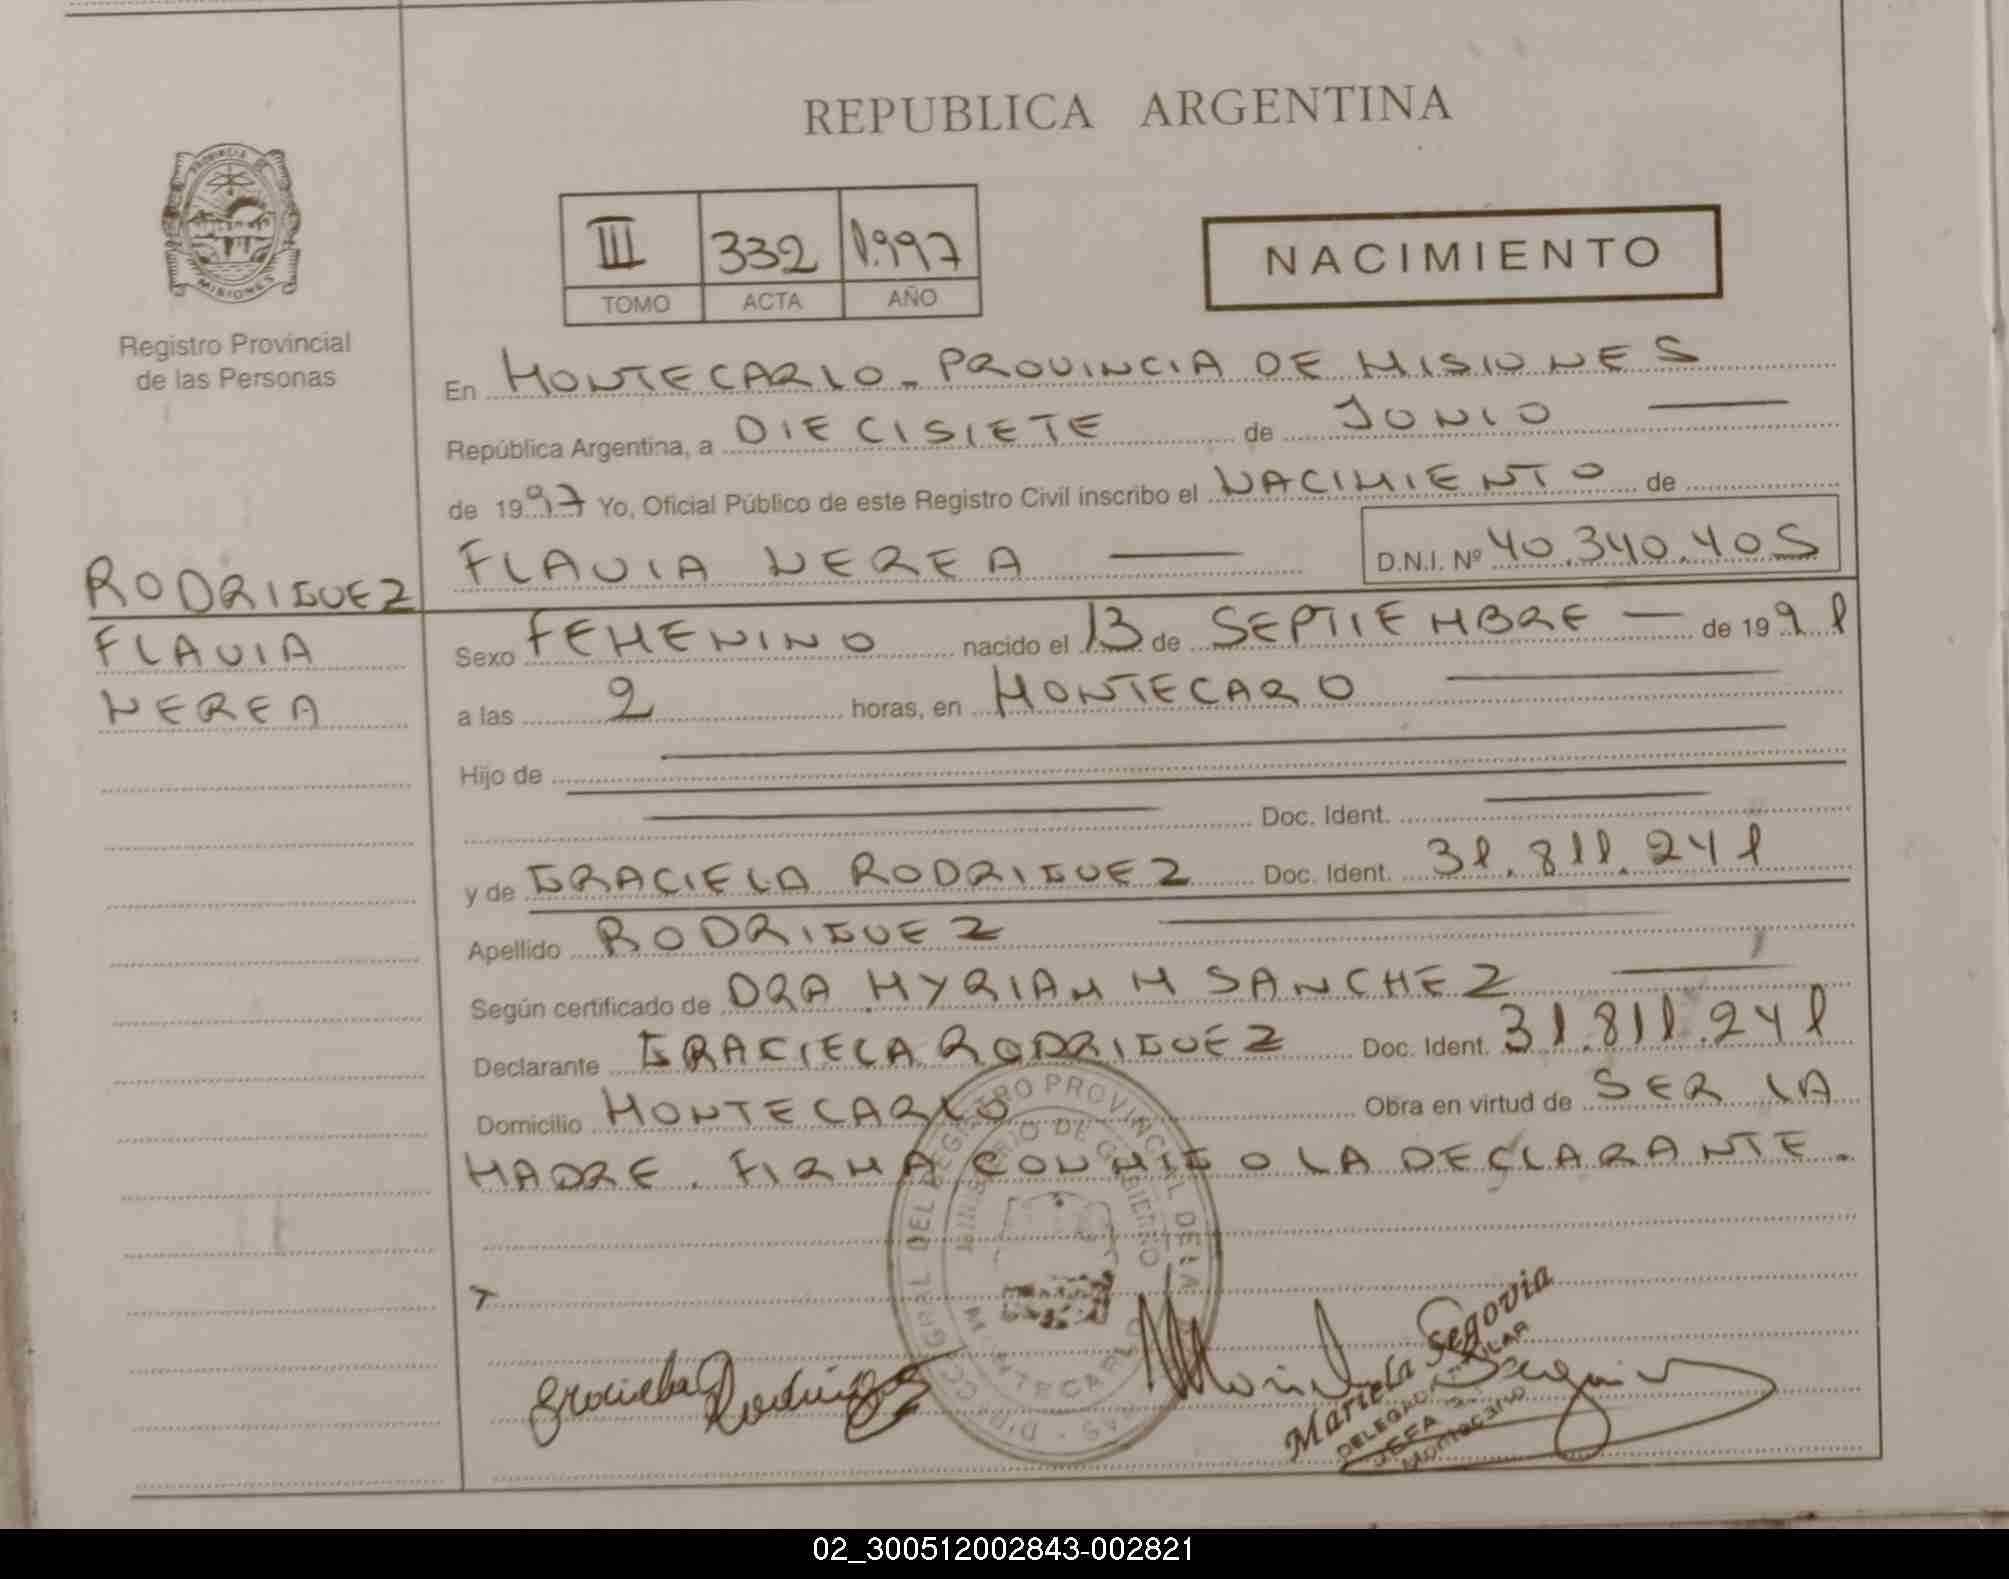 REPUBLICA ARGENTINA
PROVINCIA DE
MISIONES
Registro Provincial
de las Personas
III 332 1.997
TOMO ACTA AÑO
NACIMIENTO
En MONTECARLO - PROVINCIA DE MISIONES
República Argentina, a DIECISIETE de JUNIO
de 1997 Yo, Oficial Público de este Registro Civil inscribo el NACIMIENTO de
FLAVIA NEREA D.N.I. Nº 40.340.405
RODRIGUEZ
FLAVIA
NEREA
Sexo FEMENINO nacido el 13 de SEPTIEMBRE de 1991
a las 2 horas, en MONTECARO
Hijo de
Doc. Ident.
y de GRACIELA RODRIGUEZ Doc. Ident. 31.811.241
Apellido RODRIGUEZ
Según certificado de DRA MYRIAM M SANCHEZ
Declarante GRACIELA RODRIGUEZ Doc. Ident. 31.811.241
Domicilio MONTECARLO Obra en virtud de SER LA
MADRE. FIRMA CONMIGO LA DECLARANTE.
REGISTRO PROVINCIAL DE LA
MINISTERIO DE GOBIERNO
MONTECARLO
Graciela Rodriguez
Mariela Segovia
JEFA
Montecarlo
02_300512002843-002821